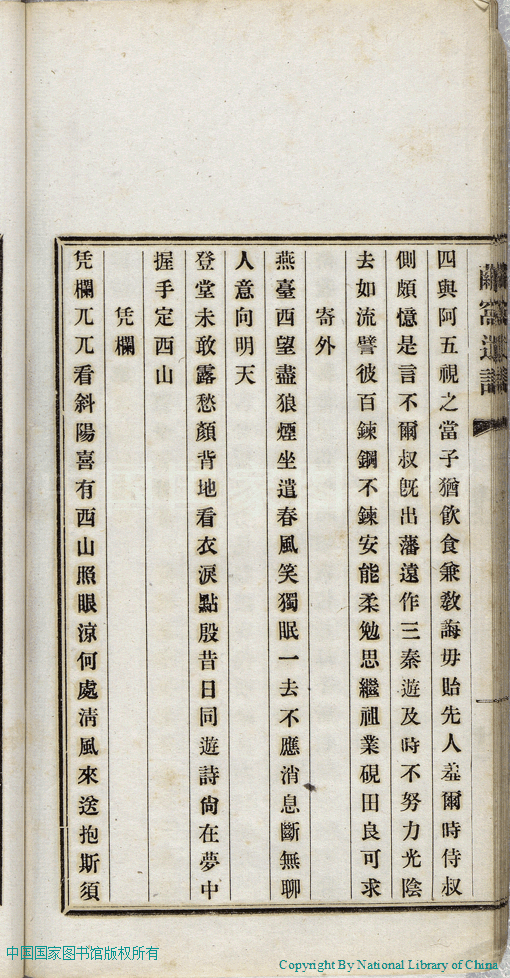 四與阿五視之當子猶飲食兼敎誨毋貽先人羞爾時侍叔
側頗憶是言不爾叔旣出藩遠作三秦遊及時不努力光陰
去如流譬彼百鍊鋼不鍊安能柔勉思繼祖業硯田良可求
寄外
燕臺西望盡狼煙坐遣春風笑獨眠一去不應消息斷無聊
人意向明天
登堂未敢露愁顏背地看衣淚點殷昔日同遊詩尙在夢中
握手定西山
凭欄
凭欄兀兀看斜陽喜有西山照眼涼何處淸風來送抱斯須
中国国家图书馆版权所有
Copyright By National Library of China